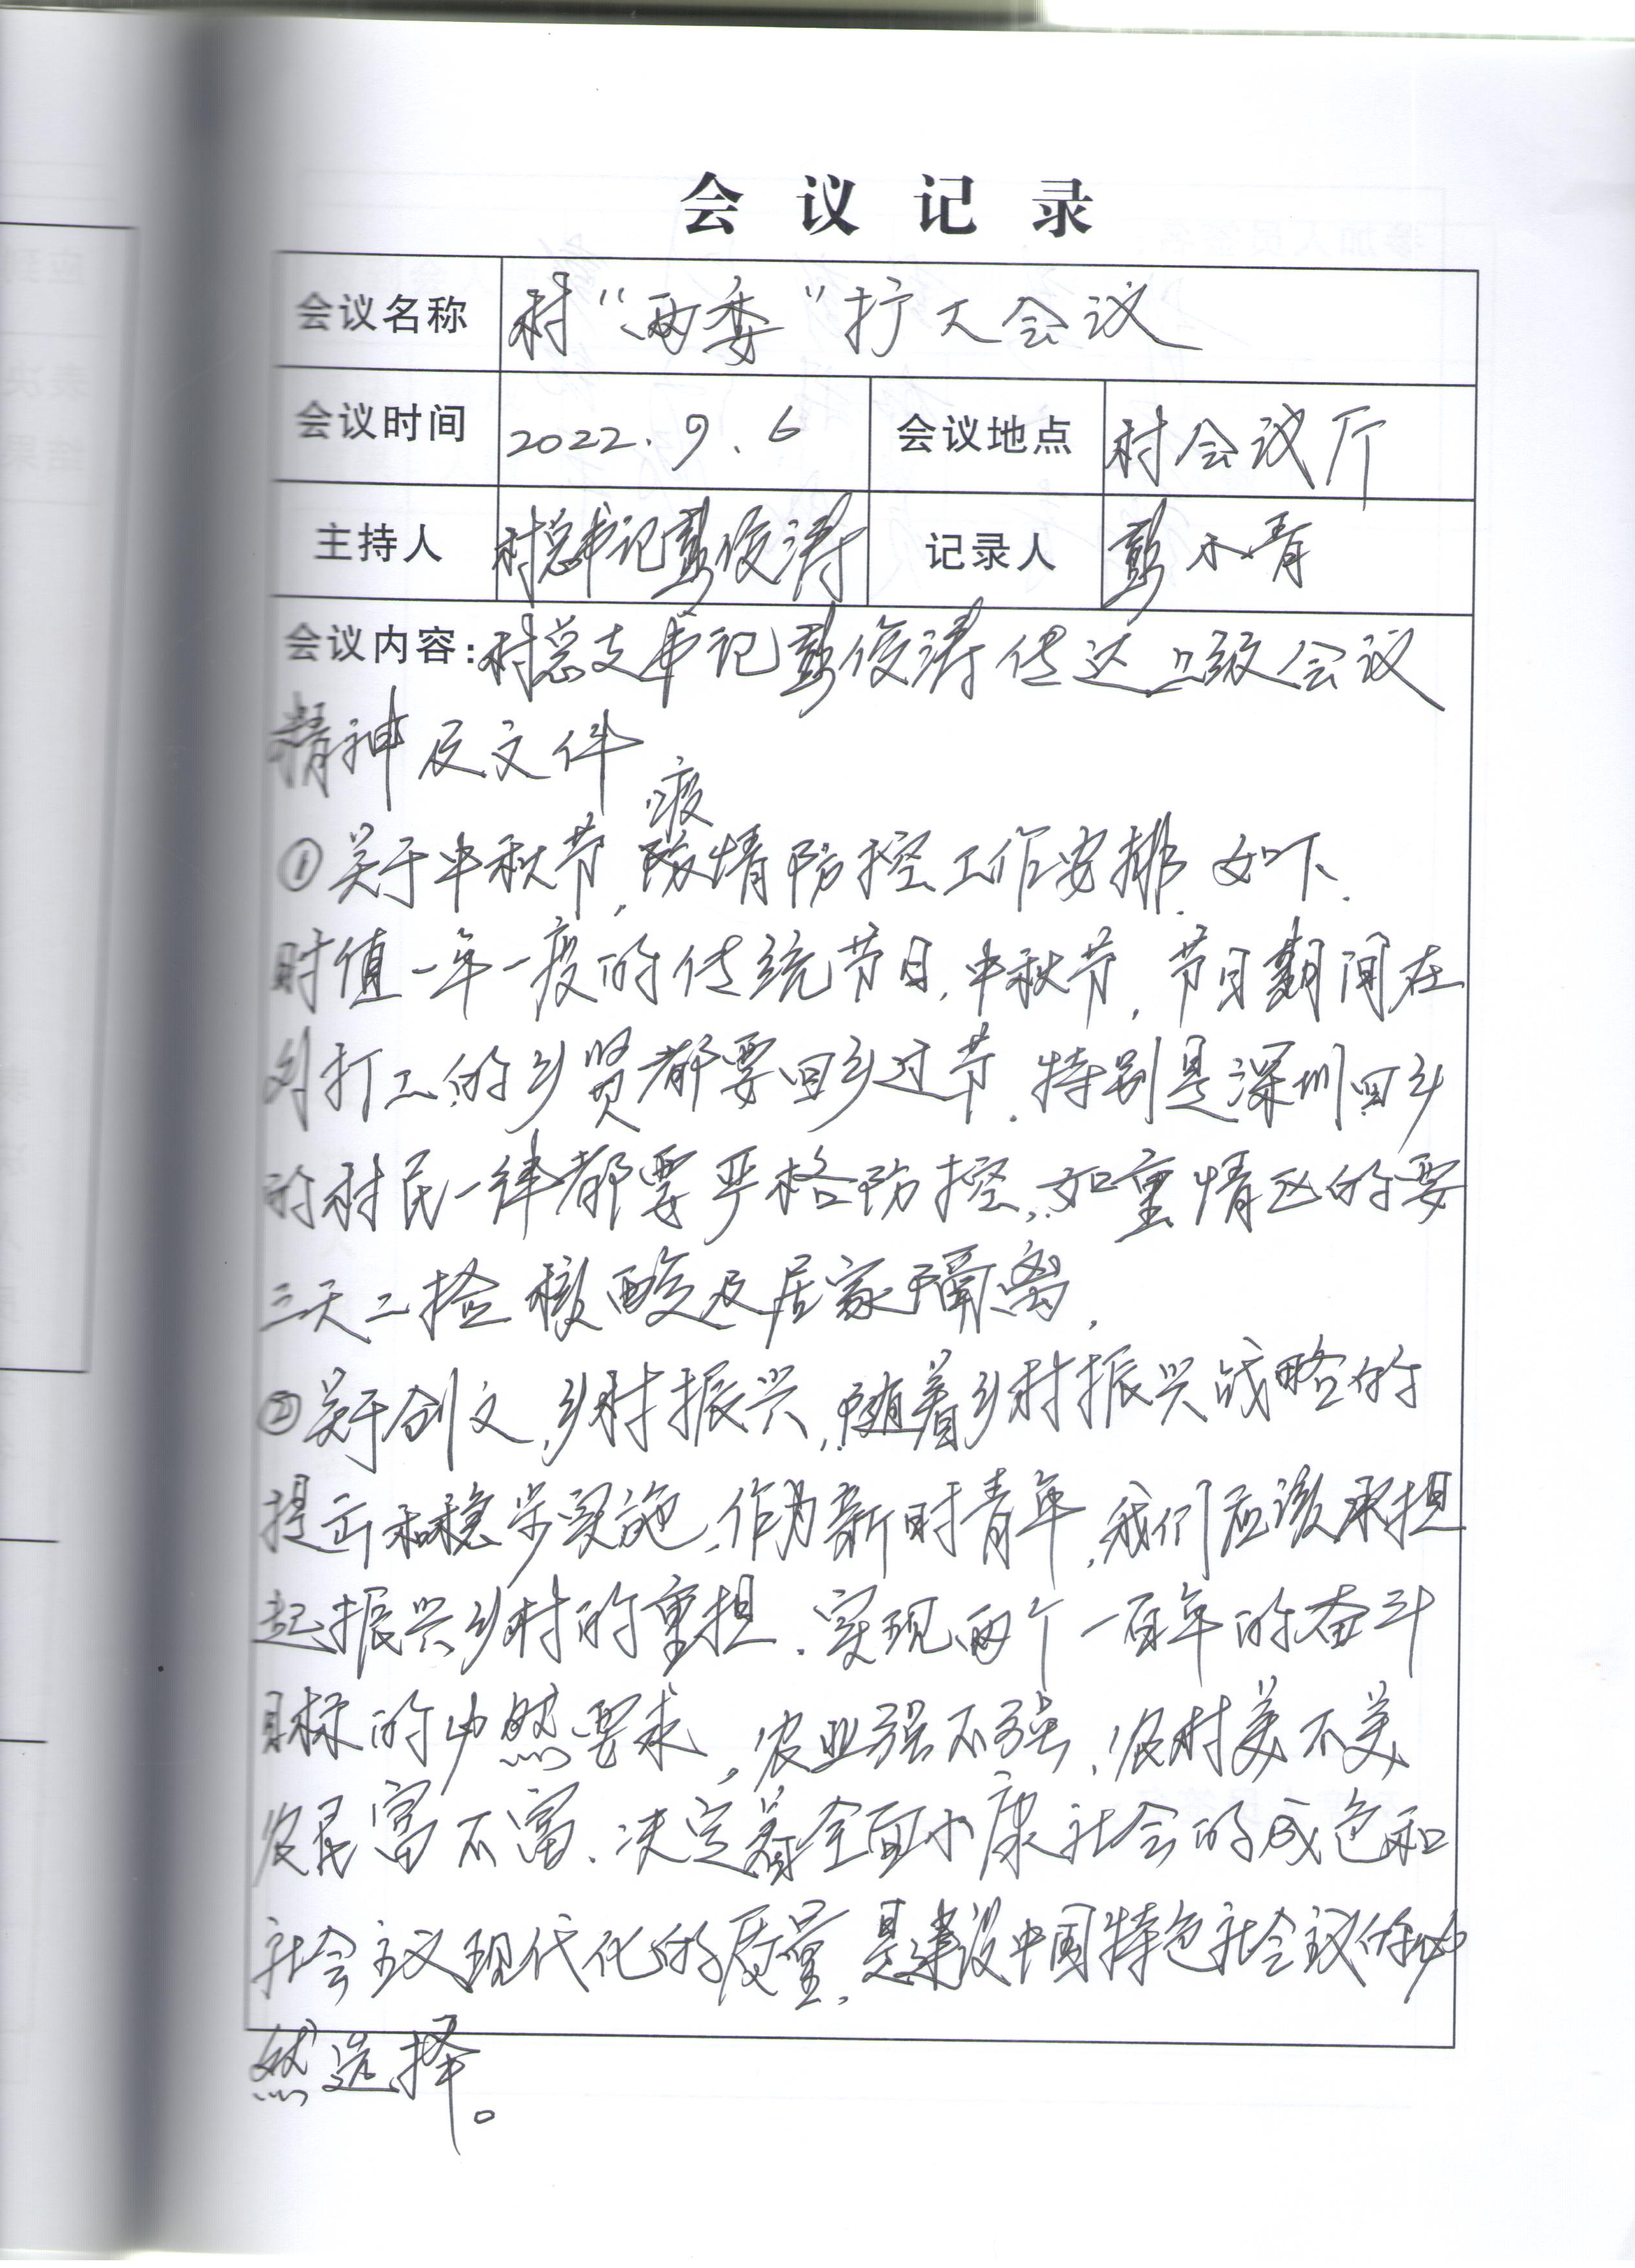 会议记录
会议名称 村“两委”扩大会议
会议时间 2022.9.6 会议地点 村会议厅
主持人 村总书记彭俊涛 记录人 彭木青
会议内容:村总支书记彭俊涛传达上级会议
精神及文件
疫
①关于中秋节,情防控工作安排.如下.
时值一年一度的传统节日,中秋节,节日期间在
外打工的乡贤都要回乡过节.特别是深圳回乡
的村民一律都要严格防控,如重情区的要
三天二捡核酸及居家隔离,
②关于创文,乡村振兴,随着乡村振兴战略的
提出和稳步实施,作为新时青年,我们应该承担
起振兴乡村的重担.实现两个一百年的奋斗
目标的必然要求,农业强不强、农村美不美
农民富不富、决定着全面小康社会的成色和
社会主义现代化的质量,是建设中国特色社会主议的必
然选择。